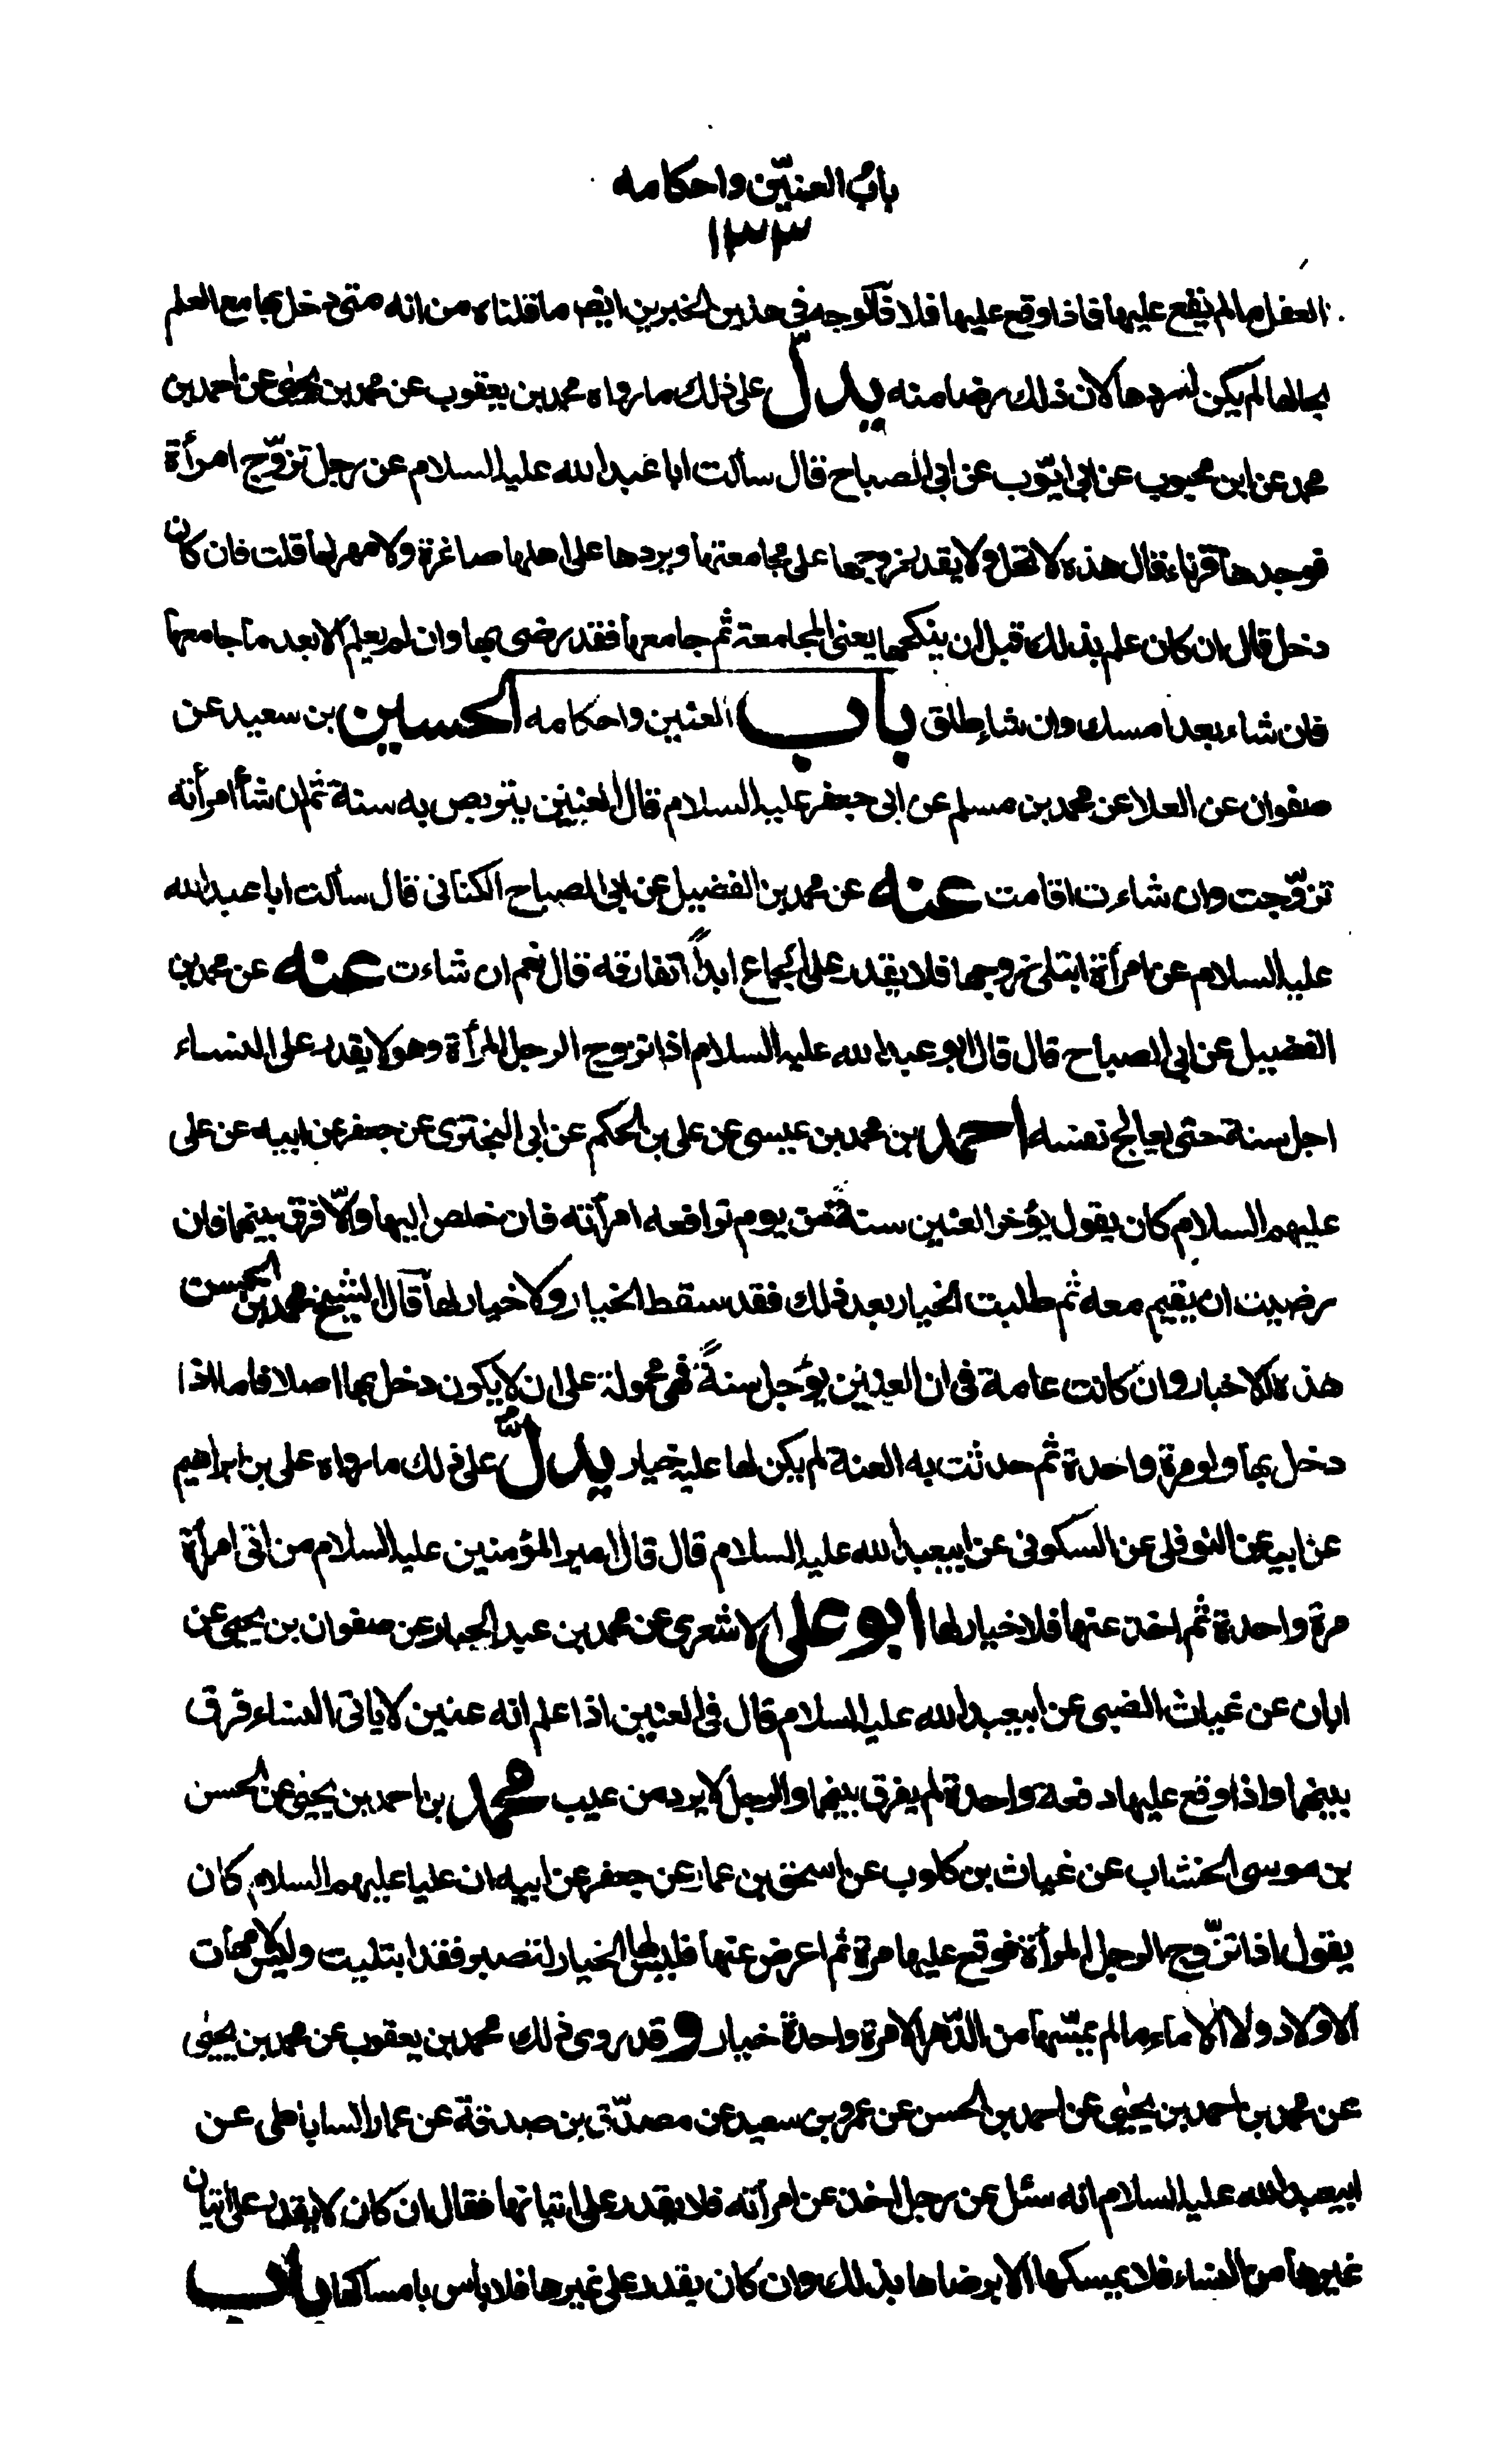 باب العنّين واحكامه
١٣٣
العفل ما لم يقع عليها فاذا وقع عليها فلا فالوجه في هذين الخبرين ايض ما قلناه من انه متى دخل بها مع العلم
بحالها لم يكن له ردها لان ذلك رضا منه يدلّ على ذلك ما رواه محمد بن يعقوب عن محمد بن يحيى عن احمد بن
محمد عن ابن محبوب عن ابي ايّوب عن ابي الصباح قال سألت ابا عبد الله عليه السلام عن رجل تزوّج امرأة
فوجدها قرناء فقال هذه لا تحبل ولا يقدر زوجها على مجامعتها ويردها على اهلها صاغرة ولا مهر لها قلت فان كان
دخل قال ان كان علم بذلك قبل ان ينكحها يعني المجامعة ثم جامعها فقد رضى بها وان لم يعلم الا بعد ما جامعها
فان شاء بعد امسك وان شاء طلق باب العنين واحكامه الحسين بن سعيد عن
صفوان عن العلا عن محمد بن مسلم عن ابي جعفر عليه السلام قال العنين يتربص به سنة ثم ان شأ امرأته
تزوّجت وان شاءت اقامت عنه عن محمد بن الفضيل عن ابي الصباح الكناني قال سألت ابا عبد الله
عليه السلام عن امرأة ابتلى زوجها فلا يقدر على الجماع ابداً اتفارقه قال نعم ان شاءت عنه عن محمد بن
الفضيل عن ابي الصباح قال قال ابو عبد الله عليه السلام اذا تزوج الرجل المرأة وهو لا يقدر على النساء
اجل سنة حتى يعالج نفسه احمد بن محمد بن عيسى عن علي بن الحكم عن ابي البختري عن جعفر عن ابيه عن على
عليهم السلام كان يقول يؤخر العنين سنة من يوم ترافعه امرأته فان خلص اليها والّا فرق بينهما فان
رضيت ان يقيم معه ثم طلبت الخيار بعد ذلك فقد سقط الخيار ولا خيار لها قال الشيخ محمد بن الحسن
هذه الاخبار وان كانت عامة في ان العنين يؤجل سنةً فهي محمولة على ان لا يكون دخل بها اصلا فاما اذا
دخل بها ولو مرة واحدة ثم حدثت به العنة لم يكن لها عليه خيار يدلّ على ذلك ما رواه على بن ابراهيم
عن ابيه عن النوفلي عن السكوني عن ابيعبد الله عليه السلام قال قال امير المؤمنين عليه السلام من اتى امرأة
مرة واحدة ثم اخذ عنها فلا خيار لها ابو على الاشعري عن محمد بن عبد الجبار عن صفوان بن يحيى عن
ابان عن غياث الضبي عن ابيعبد الله عليه السلام قال في العنين اذا علم انه عنين لا ياتي النساء فرق
بينهما واذا وقع عليها دفعة واحدة لم يفرق بينهما والرجل لا يرد من عيب محمد بن احمد بن يحيى عن الحسن
بن موسى الخشاب عن غياث بن كلوب عن اسحق بن عمار عن جعفر عن ابيه ان عليا عليهم السلام كان
يقول اذا تزّوج الرجل المرأة فوقع عليها مرة ثم اعرض عنها فليس لها الخيار لتصبر فقد ابتليت وليس لامهات
الاولاد ولا الاماء ما لم يمسّها من الدّهر الا مرة واحدة خيار وقد روى ذلك محمد بن يعقوب عن محمد بن يحيى
عن محمد بن احمد بن يحيى عن احمد بن الحسن عن عمرو بن سعيد عن مصدّق بن صدقة عن عمار الساباطي عن
ابيعبد الله عليه السلام انه سئل عن رجل اخذ عن امرأته فلا يقدر على اتيانها فقال ان كان لا يقدر على اتيان
غيرها من النساء فلا يمسكها الا برضاها بذلك وان كان يقدر على غيرها فلا باس بامساكها باب